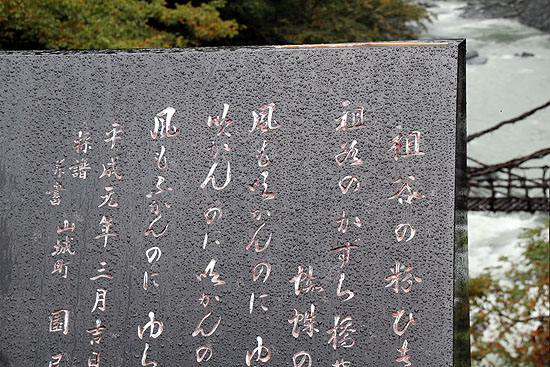 祖谷の粉ひき
祖谷のかずら橋や
蜘蛛の
風も吹かんのにゆ
吹かんのに吹かんの
風もふかんのにゆら
平成元年三月吉日
採譜
山城町 国